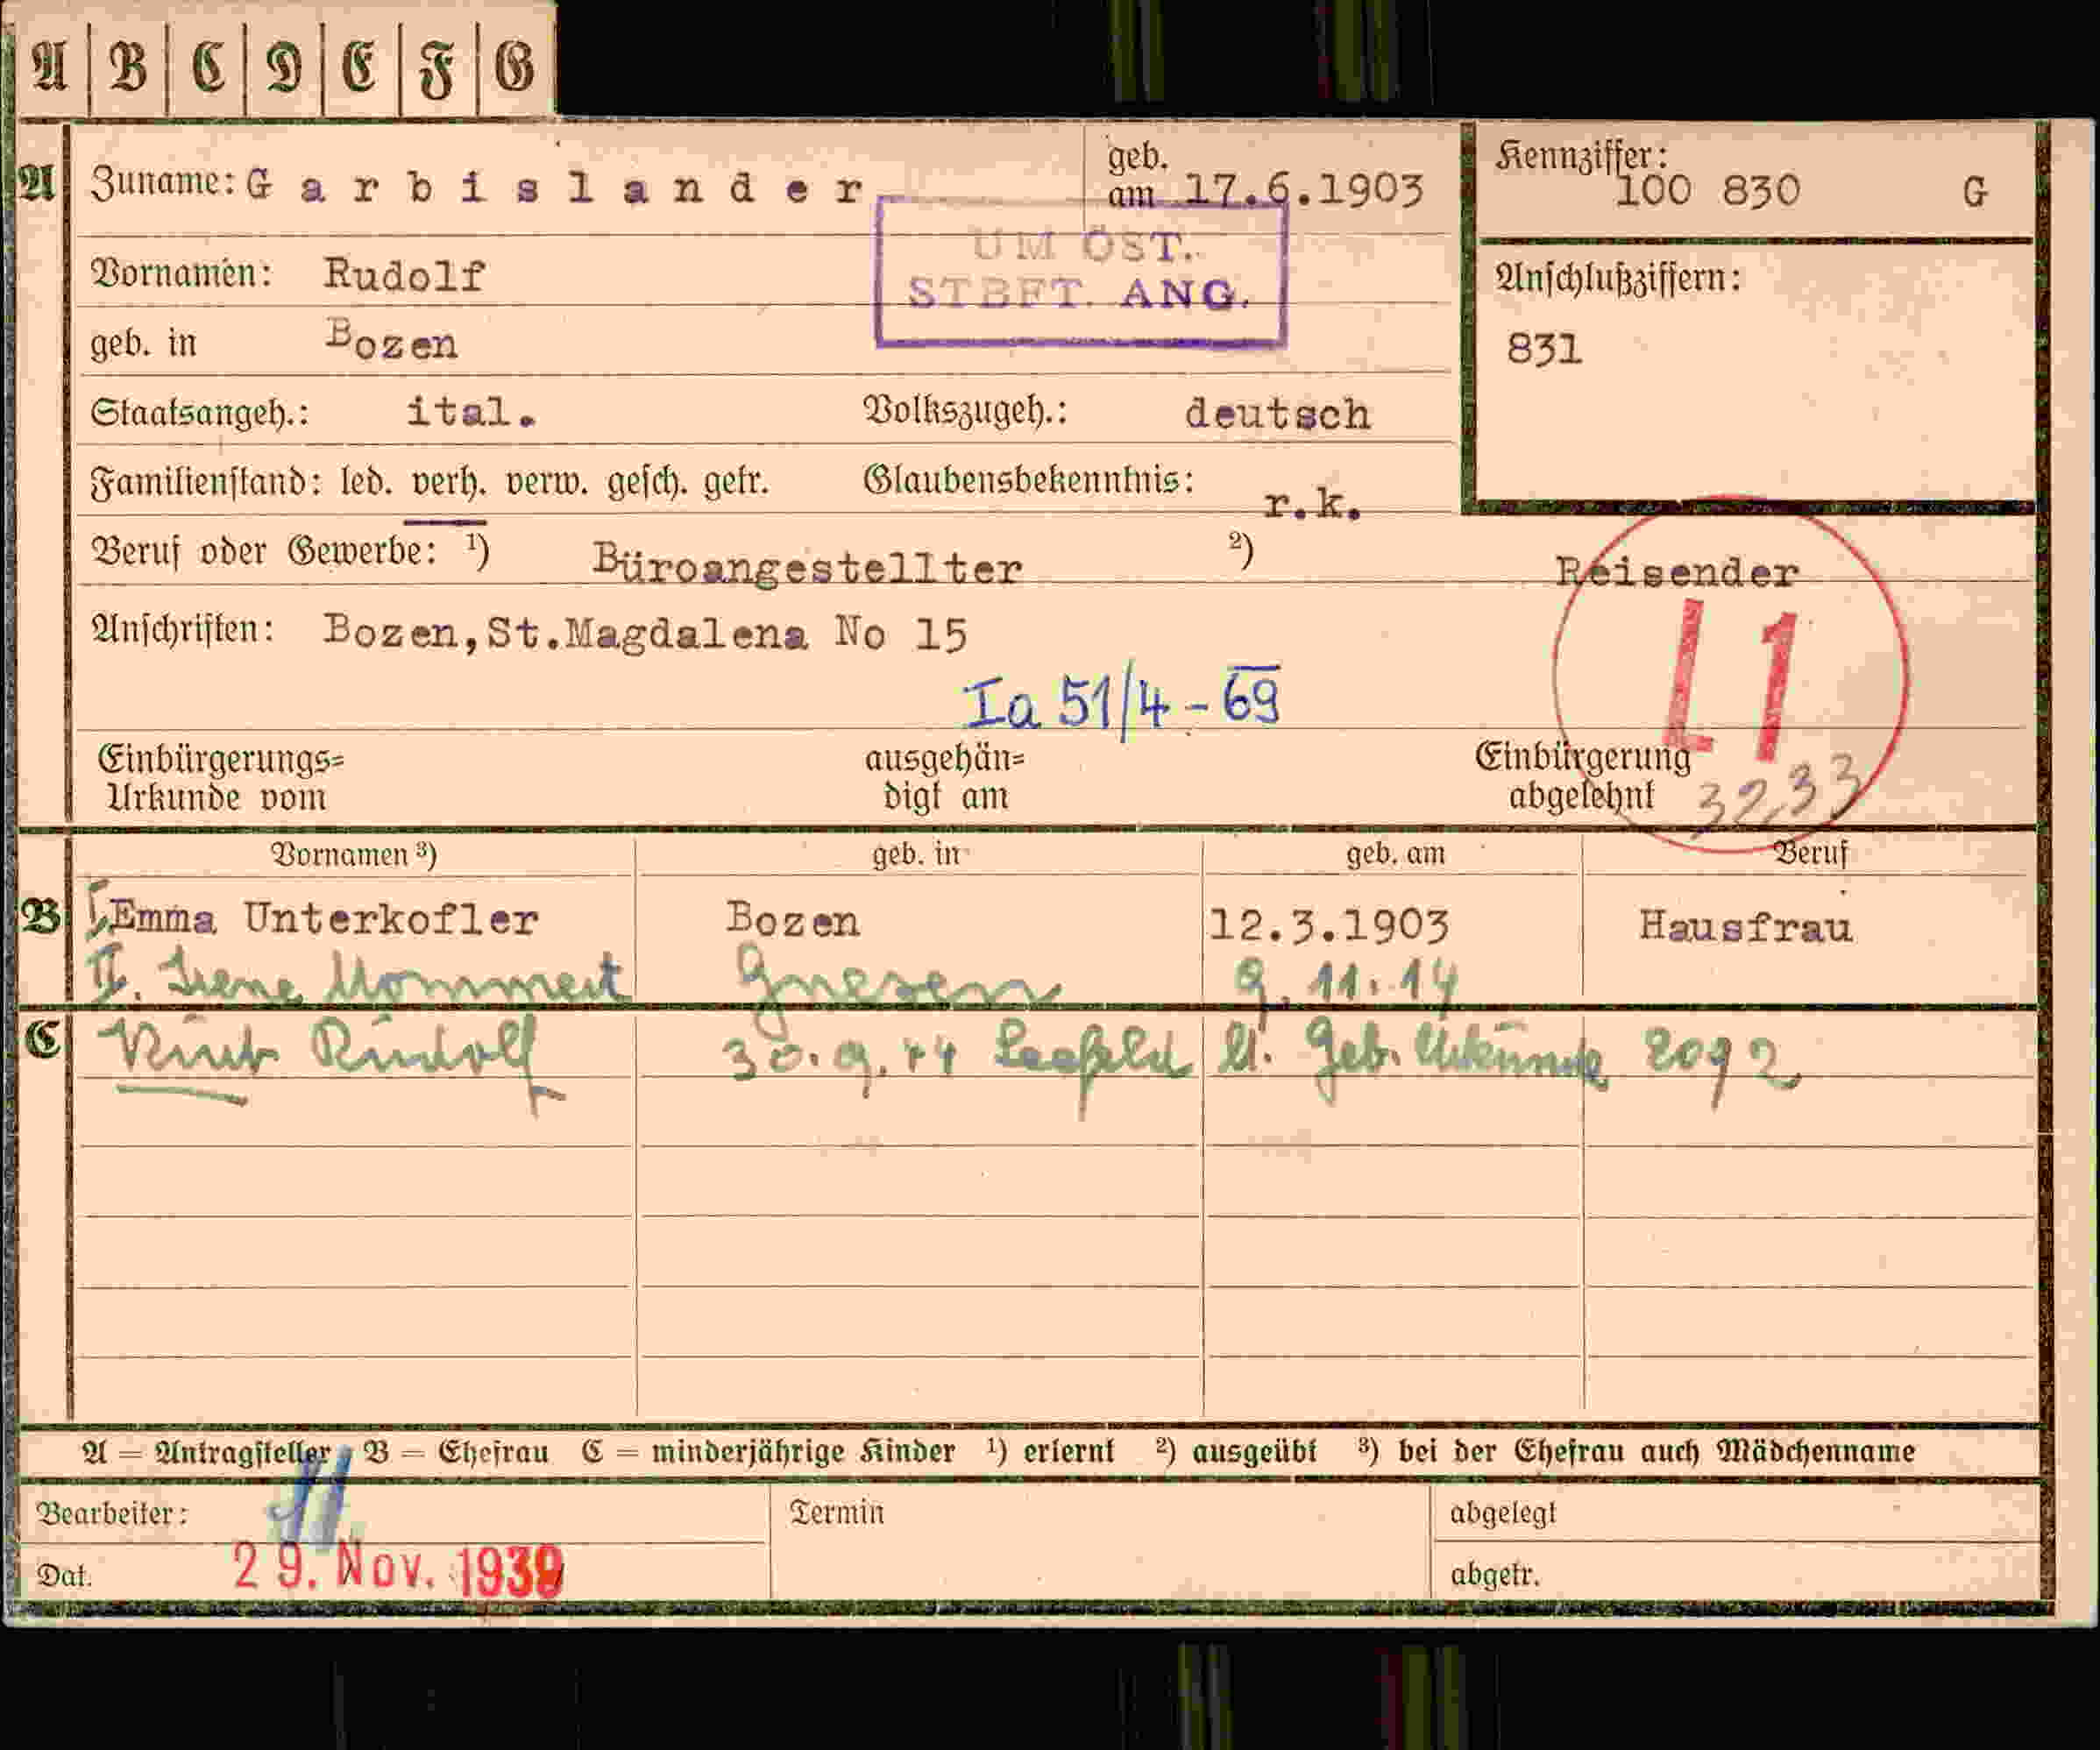 A B C D E F G
A Zuname: Garbislander geb. am 17.6.1903 Kennziffer: 100 830 G
UM ÖST.
STBFT. ANG.
Vornamen: Rudolf Anschlußziffern:
geb. in Bozen 831
Staatsangeh.: ital. Volkszugeh.: deutsch
Familienstand: led. verh. verw. gesch. getr. Glaubensbekenntnis: r.k.
Beruf oder Gewerbe: ¹) Büroangestellter ²) Reisender
Anschriften: Bozen, St.Magdalena No 15
L1
Ia 51/4 - 69
Einbürgerungs= ausgehän= Einbürgerung
Urkunde vom digt am abgelehnt 3233
Vornamen ³) geb. in geb. am Beruf
B I. Emma Unterkofler Bozen 12.3.1903 Hausfrau
II. Irene Mommert Gnesen 9.11.14
C Kurt Rudolf 30.9.44 Seefeld U. Geb. Urkunde 2092
A = Antragsteller B = Ehefrau C = minderjährige Kinder ¹) erlernt ²) ausgeübt ³) bei der Ehefrau auch Mädchenname
Bearbeiter: Termin abgelegt
Dat. 29. Nov. 1939 abgetr.